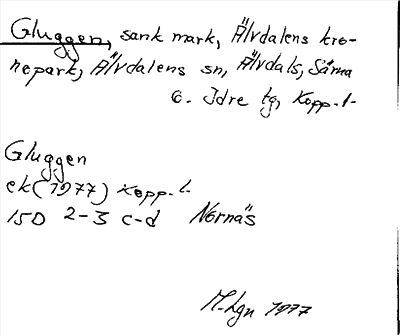 Gluggen, sank mark, Älvdalens kro-
nepark, Älvdalens sn, Älvdals, Särna
o. Idre tg, Kopp. l.
Gluggen
ek (1977) Kopp. l.
15D 2-3 c-d Nornäs
M. Lgn 1977